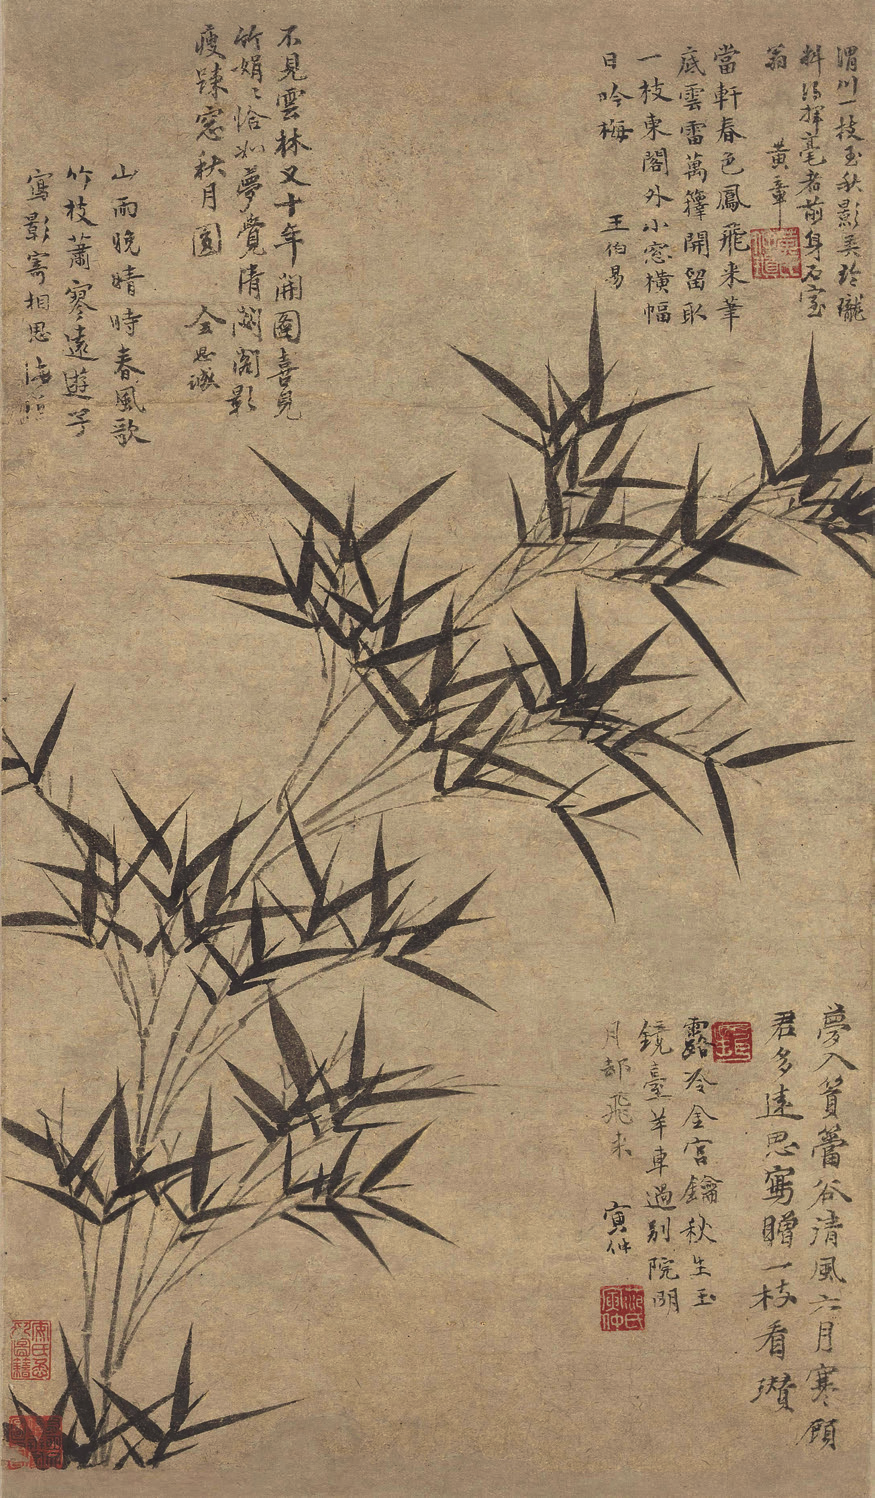 渭川一枝玉秋影美玲瓏
料得揮毫者前身石室
翁
黃章
當軒春色鳳飛來筆
底雲雷萬籜開留取
一枝東閣外小窓橫幅
日吟梅
王伯易
不見雲林又十年開圖喜見
竹娟〻恰如夢覺清閟閣影
瘦踈窓秋月圓
山雨晚晴時春風歌
竹枝蕭寥遠遊
寫影寄相思海
夢入篔簹谷清風六月寒顧
君多遠思寫贈一枝看
瓚
露冷金宮鑰秋生玉
鏡臺羊車過別院明
月却飛來
寅仲